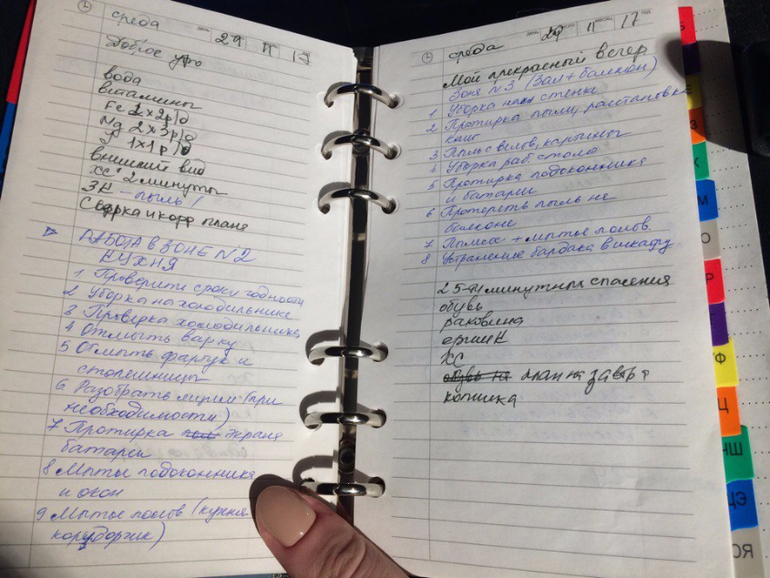 среда 29 11 17
Доброе утро
вода
витамины
Fe 2х2р/д
Mg 2х3р/д
У 1х1р/д
внешний вид
ХС 2 минуты
ЗН - пыль!
Сверка и корр плана
РАБОТА В ЗОНЕ N2
КУХНЯ
1 Проверить сроки годности
2 Уборка на холодильнике
3 Проверка холодильника
4 Отмыть варку
5 Обмыть фартук и
столешницу
6 Разобрать (при
необходимости)
7 Протирка экрана
батареи
8 Мытье подоконника
и окон
9 Мытье полов (кухня
коридорчик)
среда 29 11 17
Мой прекрасный вечер
Зона N3 (Зал + балкон)
1 Уборка стенке
2 Протирка пыли, расстановка
книг
3 Пыль с велов, картины
4 Уборка раб. стола
5 Протирка подоконника
и батареи
6 Протереть пыль на
балконе
7 Пылес + мытье полов.
8 Устранение бардака в шкафу
2 5-ти минутных спасения
обувь
раковина
ершик
ХС
план на завтра
кошка
М
О
Р
У
Ф
Ц
ЧШ
ЩЭ
ЮЯ